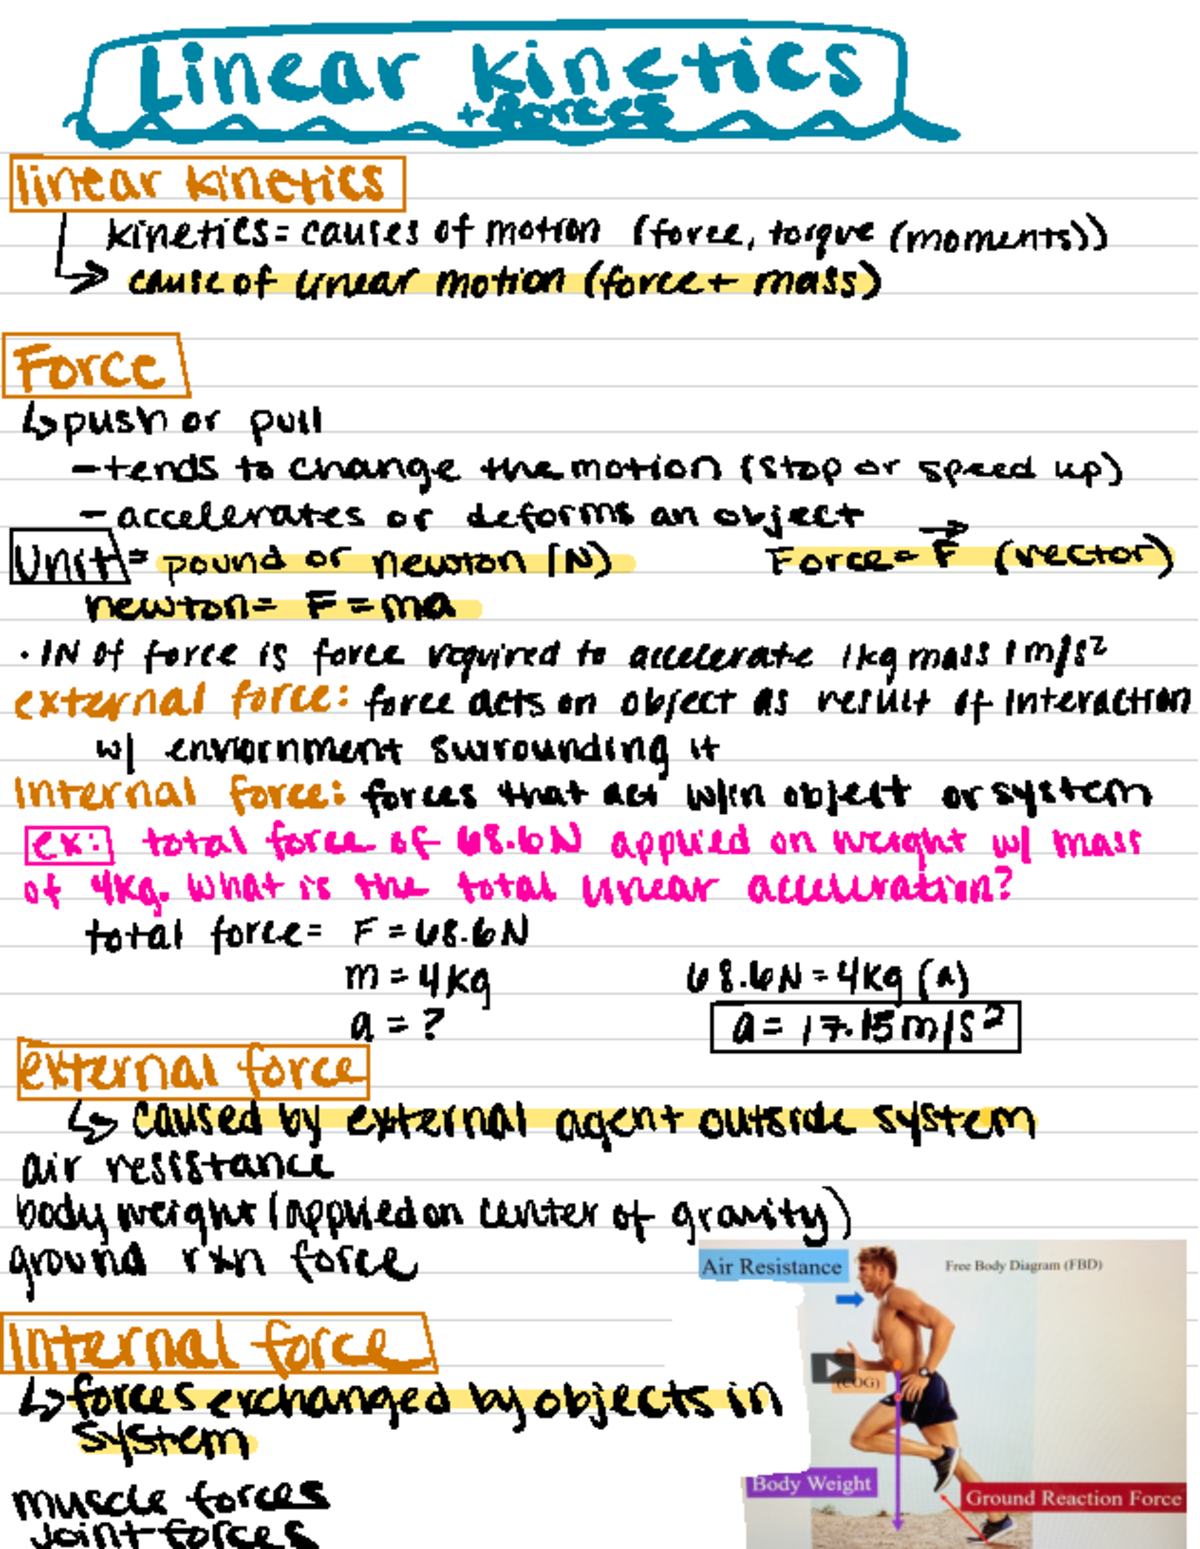 Linear kinetics
+ forces
linear kinetics
kinetics = causes of motion (force, torque (moments))
cause of linear motion (force + mass)
Force
↳ push or pull
- tends to change the motion (stop or speed up)
- accelerates or deforms an object
Unit = pound or newton (N) Force = F (vector)
newton = F = ma
• 1N of force is force required to accelerate 1kg mass 1 m/s²
external force: force acts on object as result of interaction
w/ enviornment surrounding it
Internal force: forces that act w/in object or system
ex: total force of 68.6N applied on weight w/ mass
of 4kg. What is the total linear acceleration?
total force = F = 68.6N
m = 4kg 68.6N = 4kg (a)
a = ? a = 17.15 m/s²
external force
↳ caused by external agent outside system
air resistance
body weight (applied on center of gravity)
ground rxn force
Air Resistance Free Body Diagram (FBD)
Internal force
↳ forces exchanged by objects in
system
(COG)
Body Weight
Ground Reaction Force
muscle forces
joint forces